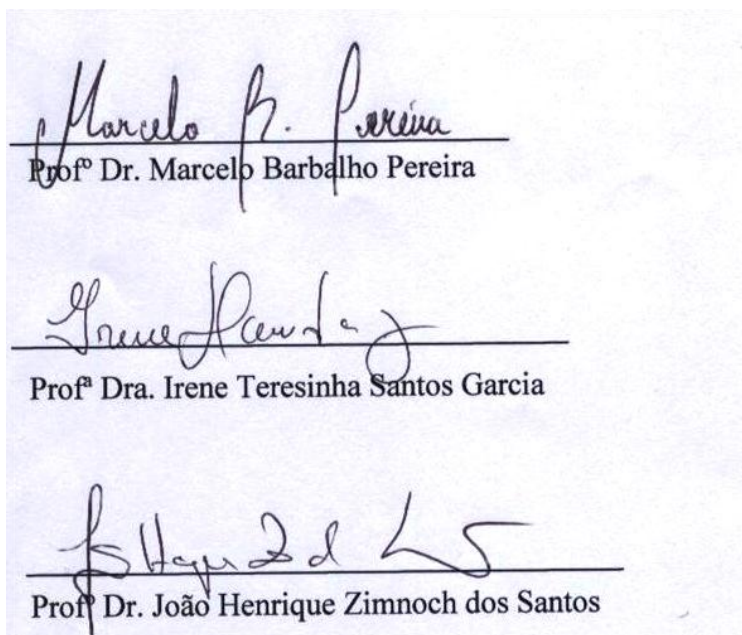 Marcelo B. Pereira
Profº Dr. Marcelo Barbalho Pereira
Irene
Profª Dra. Irene Teresinha Santos Garcia
Profº Dr. João Henrique Zimnoch dos Santos